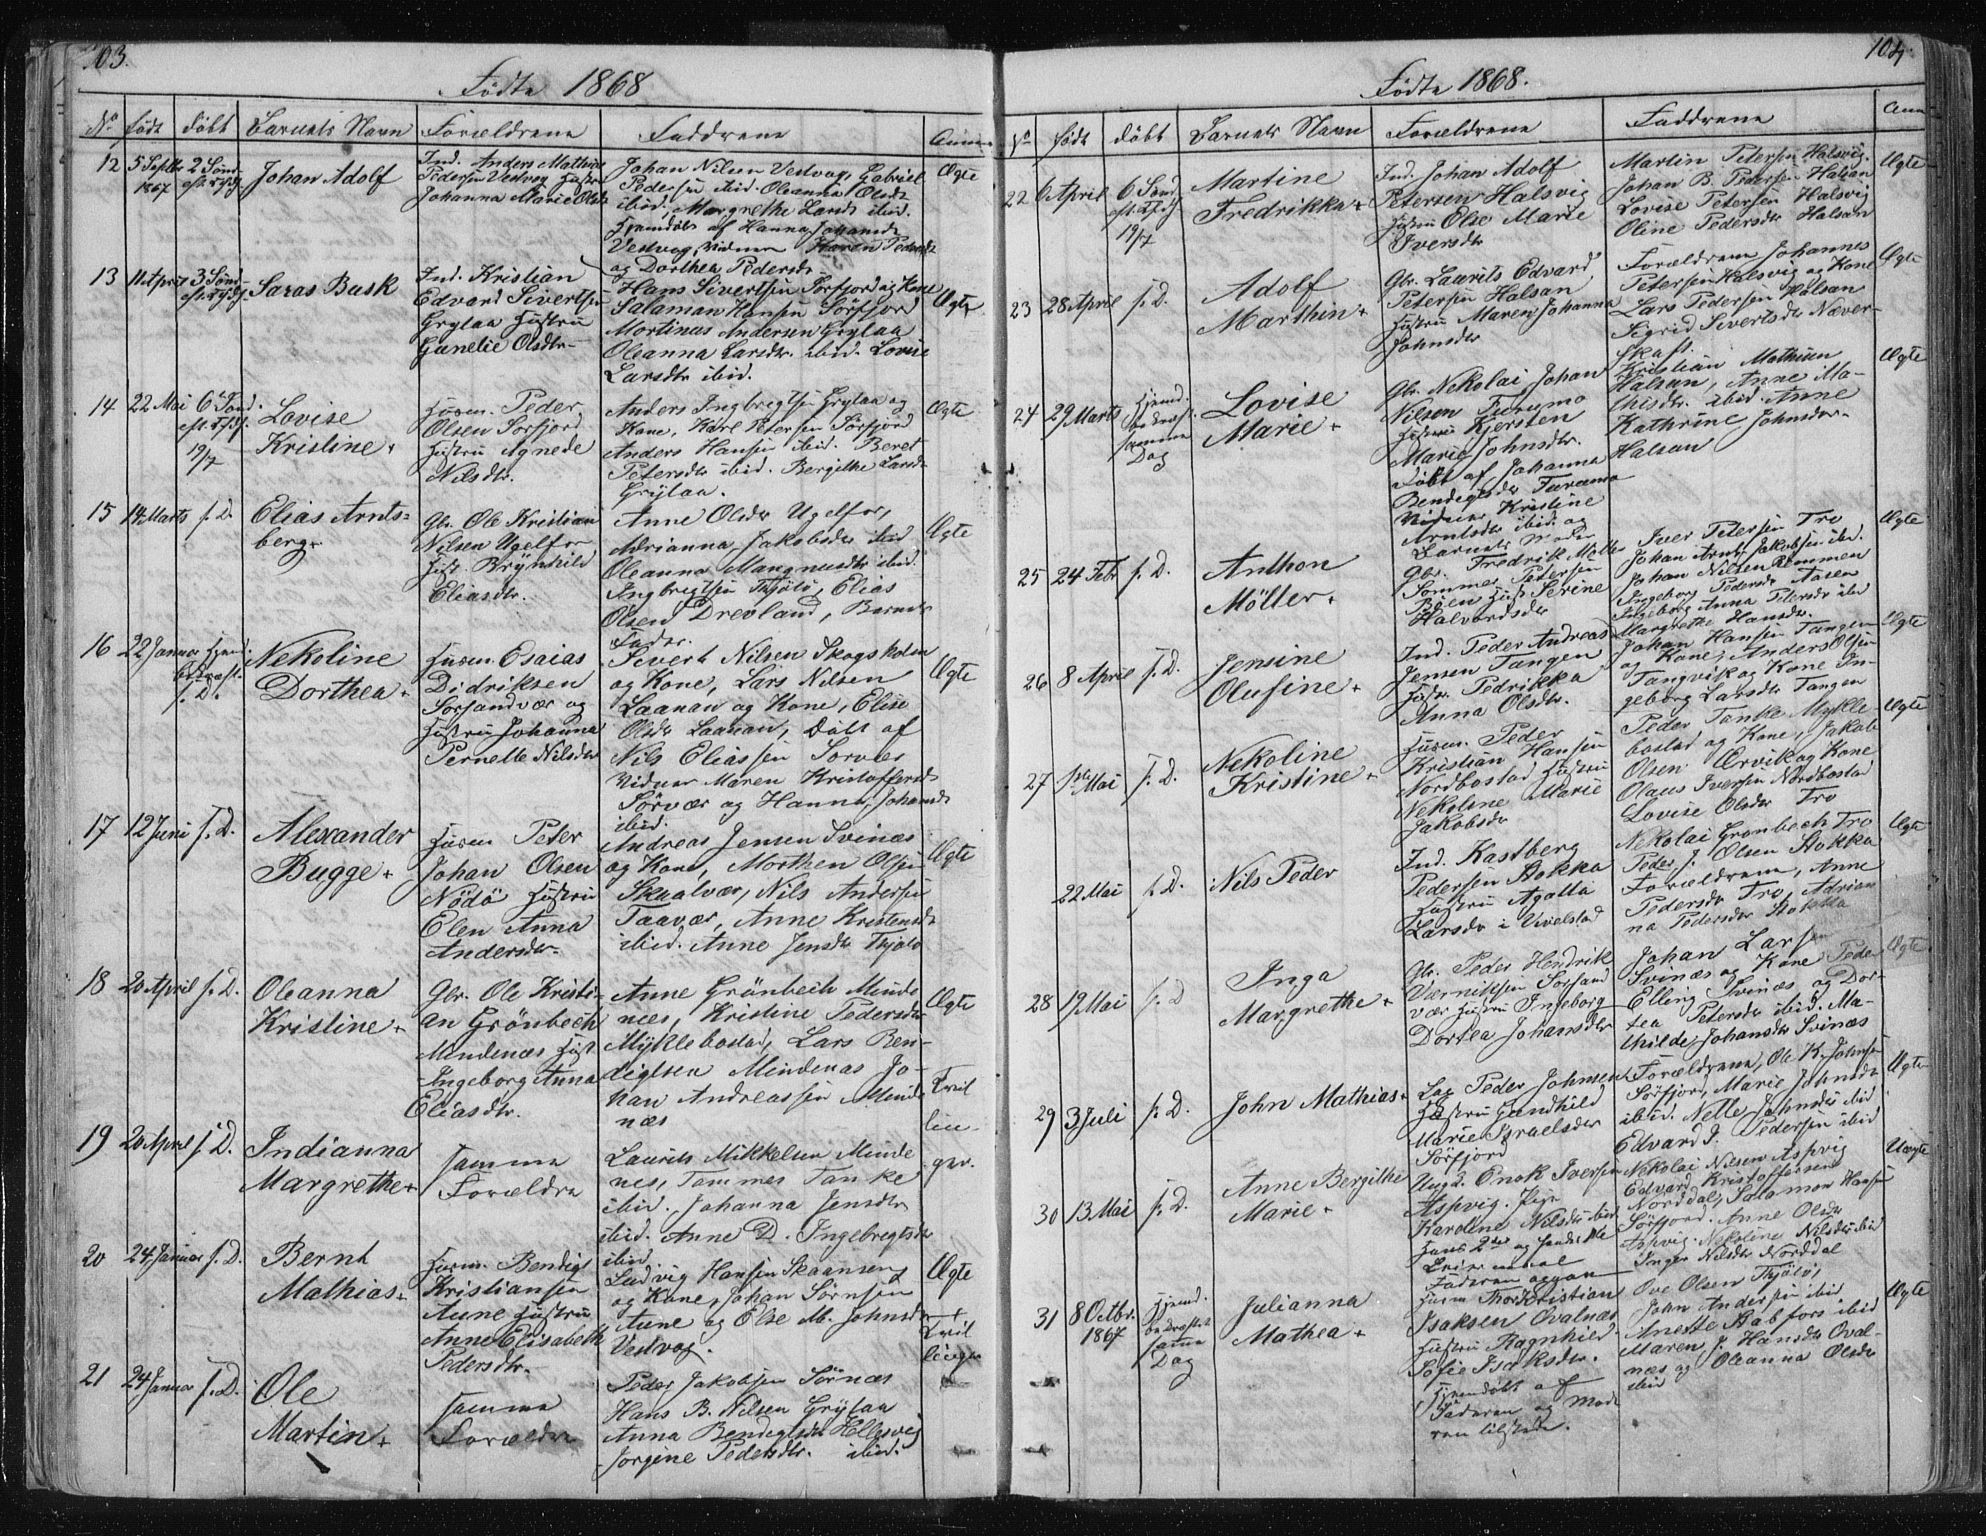 103.
Födte 1868
No födt döbt Barnets Navn Forældrene Faddrene Anm
12 5 Septbr 1867 2 Sönd. eft. Johan Adolf
Ind. Anders Mathias
Pedersen Vestvog Hustru
Johanna Marie Olsdr
Johan Nilsen Vestvog, Gabriel
Pedersen ibid. Oleanna Olsdr
ibid., Margrethe Larsdr ibid.
Hjemdöbt af Hanna Johannsdr
Vestvog, Vidner Maren Pedersdr
og Dorthea Pedersdr
Ægte
13 11 April 3 Sönd. eft. Saras Busk
Ind. Kristian
Edvard Sivertsen
Grylaa Hustru
Gunelie Olsdtr
Hans Sivertsen Sörfjord og Kone
Salamon Hansen Sörfjord
Mortinus Andersen Grylaa
Oleanna Larsdtr. ibid. Lovise
Larsdtr ibid.
Ægte
14 22 Mai 6 Sönd. eft. 19/7 Lovise
Kristine
Husm. Peder
Olsen Sörfjord
Hustru Agnede
Nilsdtr.
Anders Ingbregtsen Grylaa og
Kone, Karl Petersen Sörfjord
Anders Hansen ibid. Beret
Petersdtr ibid. Bergithe Larsdr
Grylaa.
Ægte
15 14 Marts s. D. Elias Arnts=
berg
Gbr. Ole Kristian
Nilsen Ugelfor
Hust. Brynhild
Eliasdtr.
Anne Olsdr Ugelfor,
Adrianna Jakobsdr ibid
Oleanna Mangnusdtr ibid.
Ingbregtsen Thjötö, Elias
Olsen Drevland, Barnets
Fader.
Ægte
16 22 Januar Hjemd. bekræft. s. D. Nekoline
Dorthea
Husm. Esaias
Didriksen
Sörsandvær og
Hustru Johanna
Pernelle Nilsdtr
Sivert Nilsen Skogsholm
og Kone, Lars Nilsen
Laanan og Kone, Elise
Olsdr Laanan, Döbt af
Nils Eliassen Sörvær
Vidner Maren Kristoffersdr
Sörvær og Hanna Johansdr
ibid.
Ægte
17 12 Juni s. D. Alexander
Bugge
Husm Peter
Johan Olsen
Nödö Hustru
Elen Anna
Andersdtr.
Andreas Jensen Svinæs
og Kone, Morthen Olsen
Skaalvær, Nils Andersen
Taavær, Anne Kristensdr
ibid. Anne Jensdr Thjötö
Ægte
18 20 April s. D. Oleanna
Kristine
Gbr. Ole Kristi-
an Grönbech
Mindenæs Hust
Ingeborg Anna
Eliasdtr.
Anne Grönbech Minde
næs, Kristine Pedersdr
Myklebostad, Lars Ben-
digtsen Mindenæs Jo-
han Andreassen Minde
næs
Ægte
Tvil
lin-
ger.
19 20 April s. D. Indianna
Margrethe
samme
Forældre
Laurits Mikkelsen Minde
nes, Tammes Tanke
ibid. Johanna Jensdtr
ibid. Anne D. Ingebregtsdr
ibid.
20 24 Januar s. D. Bernt
Mathias
Husm. Bendigt
Kristiansen
Aune Hustru
Anne Elisabeth
Pedersdtr.
Ludvig Hansen Skaansen
og Kone, Johan Sörnsen
Aune og Else M. Johnsdr
Vestvog.
Ægte
Tvil
linger
21 24 Januar s. D. Ole
Martin
samme
Forældre
Peder Jakobsen Sörnæs
Hans B. Nilsen Grylaa
Anna Bendigtsdr Hellesvig
Jorgine Pedersdtr. ibid.
104.
Födte 1868.
No födt döbt Barnets Navn Forældrene Faddrene Anm
22 6 April 6 Sönd eft. 19/7 Martine
Fredrikka
Ind. Johan Adolf
Petersen Halsvig
Hustru Else Marie
Iversdtr
Martin Petersen Halsvig.
Johan B. Pedersen Halsan
Lovise Petersen Halsvig
Oline Pedersdtr Halsan
Ægte
23 28 April s. D. Adolf
Marthin
Gbr. Laurits Edvard
Petersen Halsan
Hustru Maren Johanna
Johnsdtr
Forældrene Johannes
Petersen Halsvig og Kone
Lars Pedersen Halsan
Sigrid Sivertsdr Næver-
skaft.
Ægte
24 29 Marts Hjemd. bekræft. samme Dag Lovise
Marie
Gbr. Nekolai Johan
Nilsen Turumo
Hustru Kjersten
Marie Johnsdtr.
Döbt af Johanna
Bendigtsdr Turumo
Vidner Kristine
Arntsdtr ibid. og
Barnets Moder
Kristian Mathisen
Halsan, Anne Ma-
thisdr. ibid. Anne
Kathrine Johnsdr.
Halsan
Ægte
25 24 Febr s. D. Anthon
Möller
Gbr. Fredrik Möller
Sommer Petersen
Böen Hust. Serine
Halvordsdtr
Iver Petersen Tro
Johan Arnt Jakobsen ibd.
Johan Nilsen Remmen
Ingeborg Pedersdr Aasen
Ingeborg Anna Petersdr ibd
Margrethe Hansdr.
Ægte
26 8 April s. D. Jensine
Olufine
Ind. Peder Andreas
Jensen Tangen
Hustr. Pedrikka
Anna Olsdtr.
Johan Hansen Tangen
og Kone, Anders Olsen
Tangvik og Kone In-
geborg Larsdtr Tangen
Ægte
27 1ste Mai s. D. Nekoline
Kristine
Husm. Peder
Kristian Hansen
Nordbostad Hustru
Nekoline Marie
Jakobsdr
Peder Tanke Mykle
bostad og Kone, Jakob
Olsen Ørvik og Kone
Olaus Iversen Nordbostad
Lovise Olsdr Tro
Ægte
22 Mai s. D. Nils Peder
Ind. Kastberg
Pedersen Stokka
Hustru Agatta
Larsdr i Vivelstad
Nekolai Grönbech Tro
Peder J. Olsen Stokka
Forældrene, Anne
Pedersdr Tro, Adrian
na Pedersdr Stokka
Ægte
28 19 Mai s. D Inga
Margrethe
Gbr. Peder Hendrik
Værnissen Sörsand
vær Hustru Ingeborg
Dortea Johansdtr
Johan Larsen
Svinæs og Kone Peder
Elling Svinæs og Dor-
tea Petersdr ibid. Ma-
thilde Johansdr Svinæs
Ægte
29 3 Juli s. D. John Mathias
Peder Johnsen
Hustru Gundhild
Marie Israelsdr
Sörfjord
Forældrene, Ole K. Johnsen
Sörfjord, Marie Johnsdr
ibid. Nelle Johnsdr ibid
Edvard J. Pedersen ibid
Ægte
30 13 Mai s. D. Anne Bergithe
Marie
Ungk. Enok Iversen
Aspvig. Pige
Karoline Nilsdtr ibid.
hans 2det og hendes 1ste
Leiermaal
Faderen angav
Nekolai Nilsen Aspvig
Edvard Kristoffersen
Norddal, Salamon Hansen
Sörfjord. Anne Olsdr
Aspvig. Nekoline Nilsdtr ibid
Inger Nilsdtr Norddal
Uægte
31 8 Octbr. 1867 Hjemd. bekræftet samme Dag Julianna
Mathea
Husm Thor Kristian
Isaksen Ovalnæs
Hustru Ragnhild
Sofie Isaksdtr.
Hjemdöbt af
Faderen og Mode
ren tilstede.
Ove Olsen Thjötö,
John Andersen ibid
Anette Babfors ibid
Maren J. Hansdtr Oval-
næs og Oleanna Olsdr
ibid
Ægte